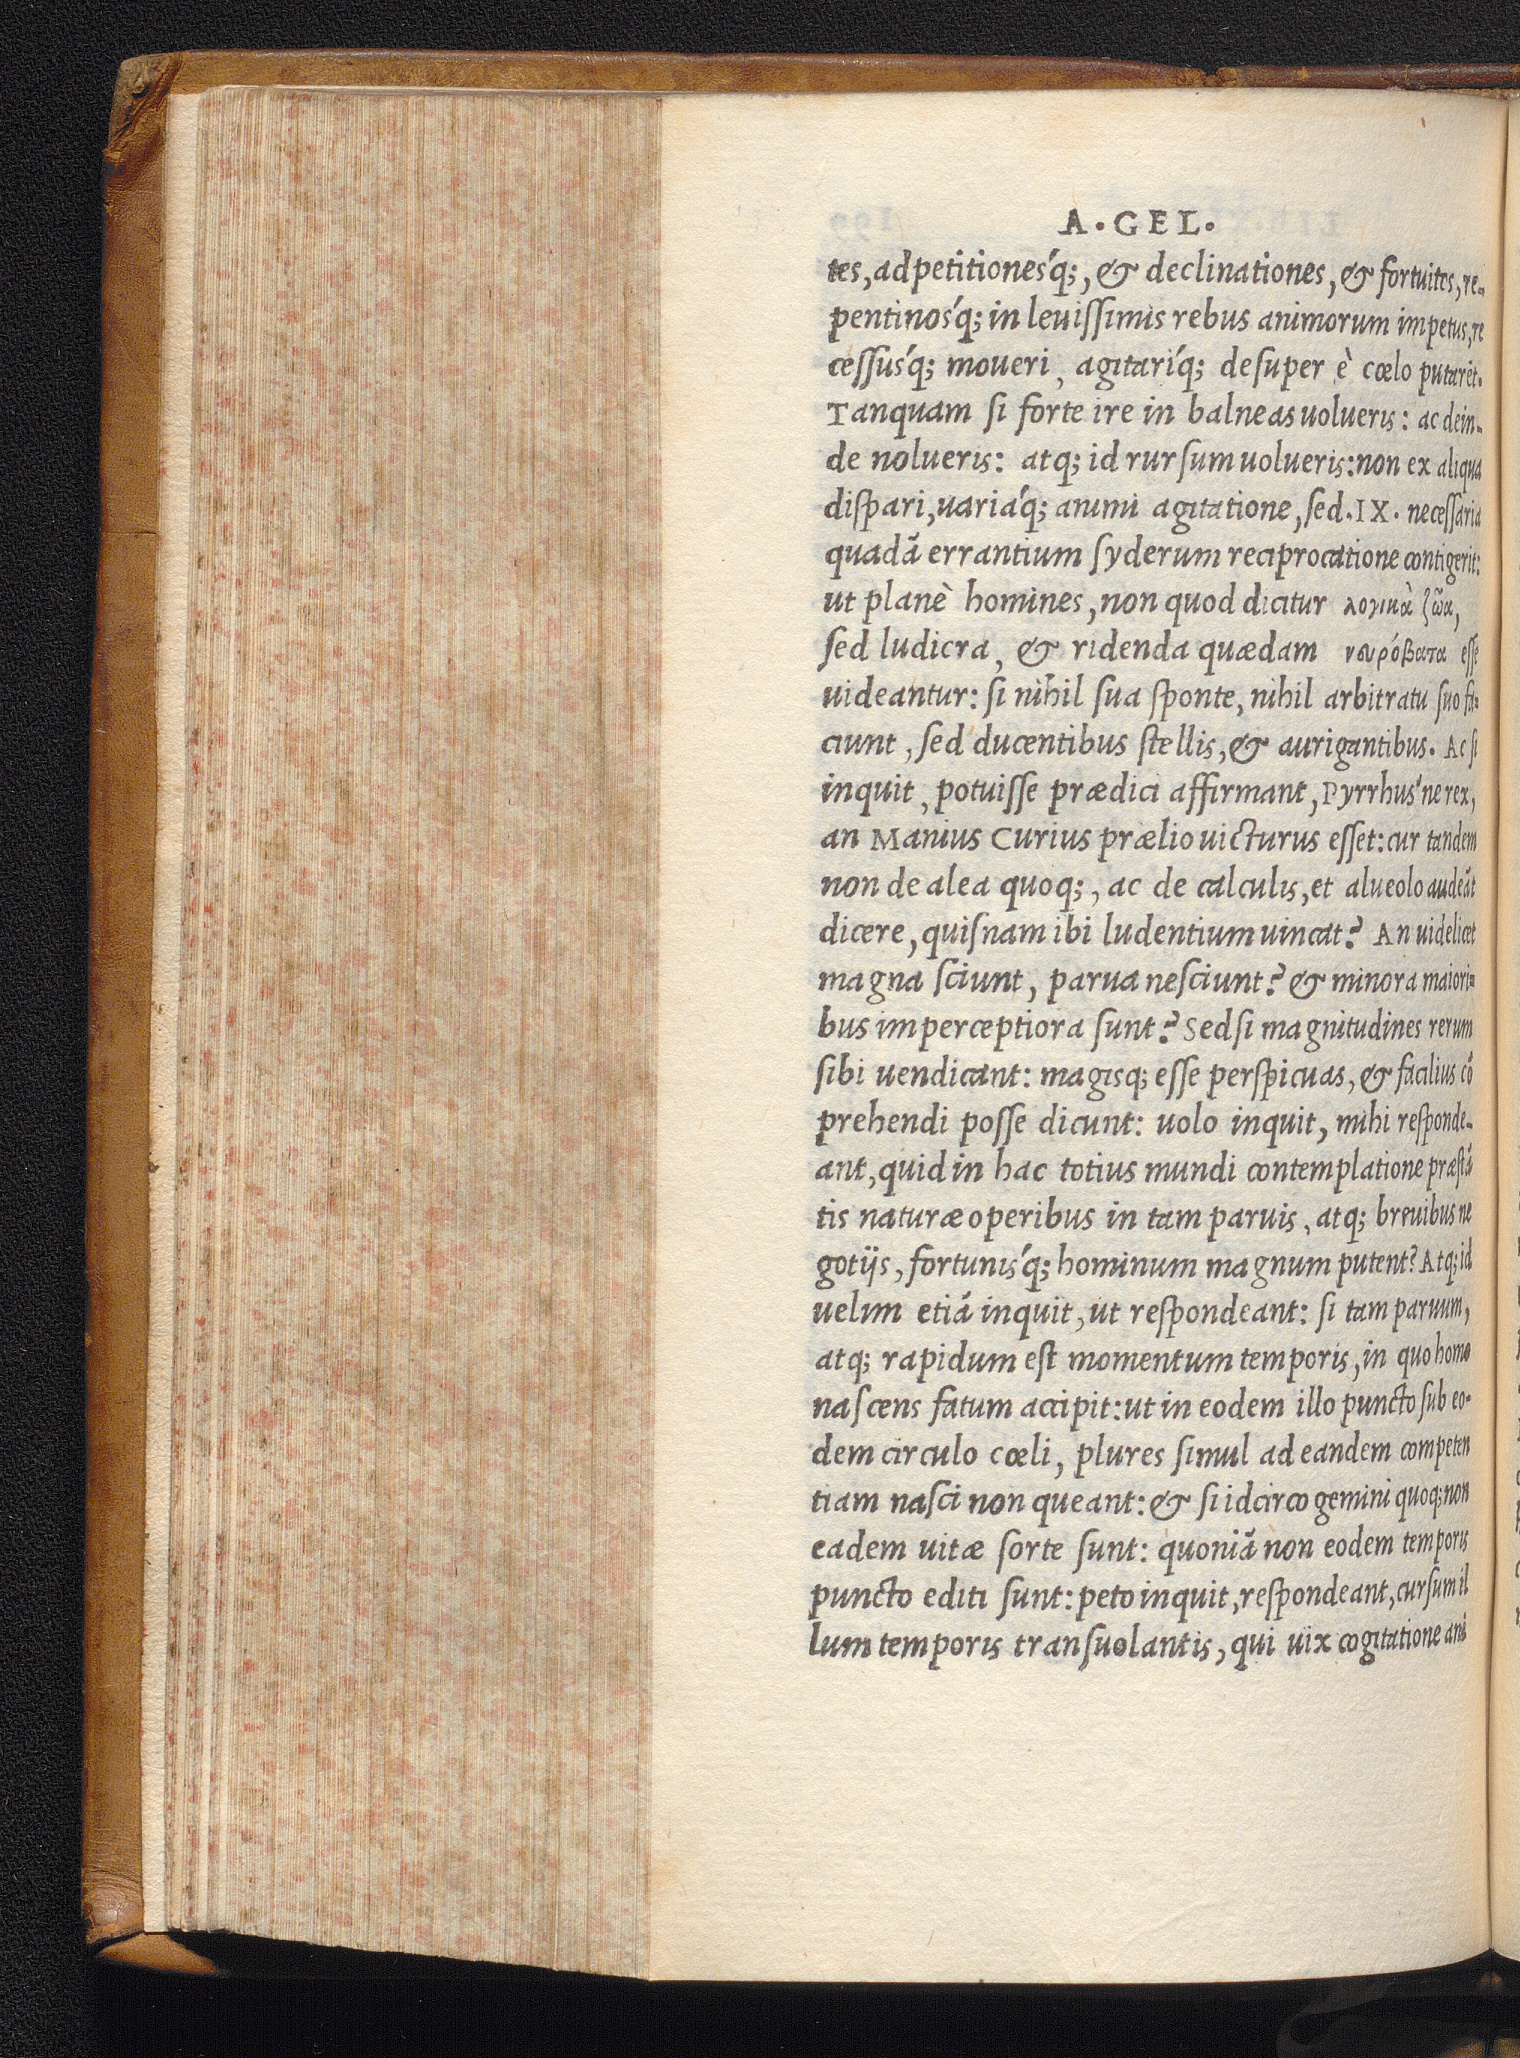 A·GEL·
tes, adpetitiones'q;, & declinationes, & fortuitos, re-
pentinos'q; in leuiſſimis rebus animorum impetus, re
ceſſus'q; moueri, agitari'q; deſuper è cœlo putarēt.
Tanquam ſi forte ire in balneas uolueris: ac dein-
de nolueris: atq; id rurſum uolueris: non ex aliqua
diſpari, uaria'q; animi agitatione, ſed .IX. neceſſaria
quadā errantium ſyderum reciprocatione contigerit:
ut planè homines, non quod dicitur λογικὰ ζῶα,
ſed ludicra, & ridenda quædam νευρόβατα eſſe
uideantur: ſi nihil ſua ſponte, nihil arbitratu ſuo fa-
ciunt, ſed ducentibus ſtellis, & aurigantibus. Ac ſi
inquit, potuiſſe prædici affirmant, Pyrrhus'ne rex,
an Manius Curius prælio uicturus eſſet: cur tandem
non de alea quoq;, ac de calculis, et alueolo audeāt
dicere, quiſnam ibi ludentium uincat? An uidelicet
magna ſciunt, parua neſciunt? & minora maiori-
bus imperceptiora ſunt? Sed ſi magnitudines rerum
ſibi uendicant: magisq; eſſe perſpicuas, & facilius cō
prehendi poſſe dicunt: uolo inquit, mihi reſponde-
ant, quid in hac totius mundi contemplatione præſtā
tis naturæ operibus in tam paruis, atq; breuibus ne
gotijs, fortunis'q; hominum magnum putent? Atq; id
uelim etiā inquit, ut reſpondeant: ſi tam paruum,
atq; rapidum eſt momentum temporis, in quo homo
naſcens fatum accipit: ut in eodem illo puncto ſub eo-
dem circulo cœli, plures ſimul ad eandem competen
tiam naſci non queant: & ſi idcirco gemini quoq; non
eadem uitæ ſorte ſunt: quoniā non eodem temporis
puncto editi ſunt: peto inquit, reſpondeant, curſum il
lum temporis tranſuolantis, qui uix cogitatione ani